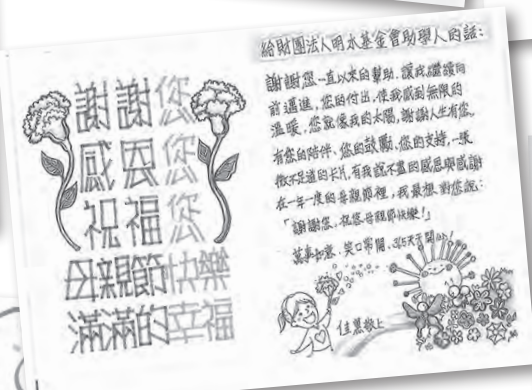 謝謝您
感恩您
祝福您
母親節快樂
滿滿的幸福
給財團法人明水基金會助學人的話：
謝謝您一直以來的幫助，讓我繼續向
前邁進，您的付出，使我感到無限的
溫暖，您就像我的太陽，謝謝人生有您。
有您的陪伴、您的鼓勵、您的支持，一張
微不足道的卡片，有我說不盡的感恩與感謝
在一年一度的母親節裡，我最想對您說：
「謝謝您，祝您母親節快樂！」
萬事如意、笑口常開、天天開心！
敬上